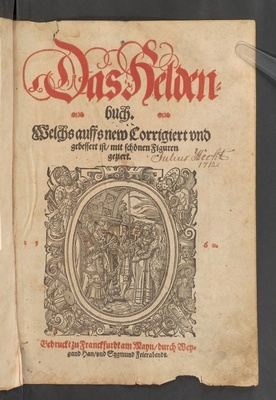 Das Helden-
buch.
Welchs auffs new Corrigiert vnd
gebessert ist / mit schönen Figuren
geziert.
Julius Hecht
1712.
15 60
Gedruckt zu Franckfurdt am Mayn / durch Wey-
gand Han / vnd Sygmund Feierabendt.